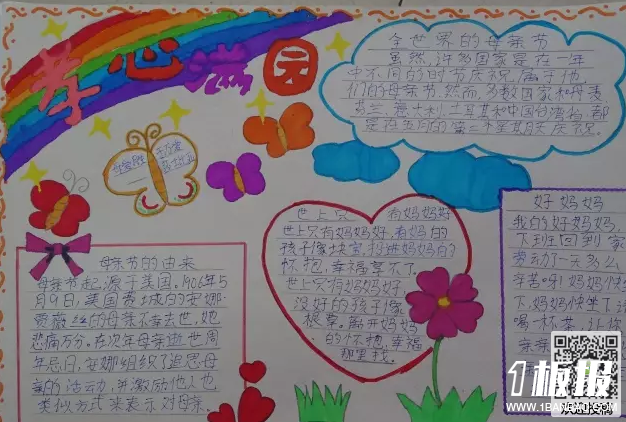 孝心满园
全世界的母亲节
虽然,许多国家是在一年
中不同的时节庆祝属于他
们的母亲节,然而,多数国家和丹麦
芬兰、意大利、土耳其和中国台湾省,都
是在五月的第二个星期天庆祝。
母亲节的由来
母亲节起源于美国。1906年5
月9日,美国费城的安娜·
贾薇丝的母亲不幸去世,她
悲痛万分。在次年母亲逝世周
年忌日,安娜组织了追思母
亲的活动,并激励他人也
类似方式来表示对母亲。
世上只 有妈妈好
世上只有妈妈好,有妈的
孩子像块宝,投进妈妈的
怀抱,幸福享不了。
世上只有妈妈好,
没妈的孩子像
根草。离开妈妈
的怀抱,幸福
那里找。
好妈妈
我的好妈妈,
下班回到家
劳动了一天多么
辛苦呀!妈妈快坐
下,妈妈快坐下,请
喝一杯茶,让你
亲亲
1板报
WWW.1BANBAO.COM
欢迎投稿